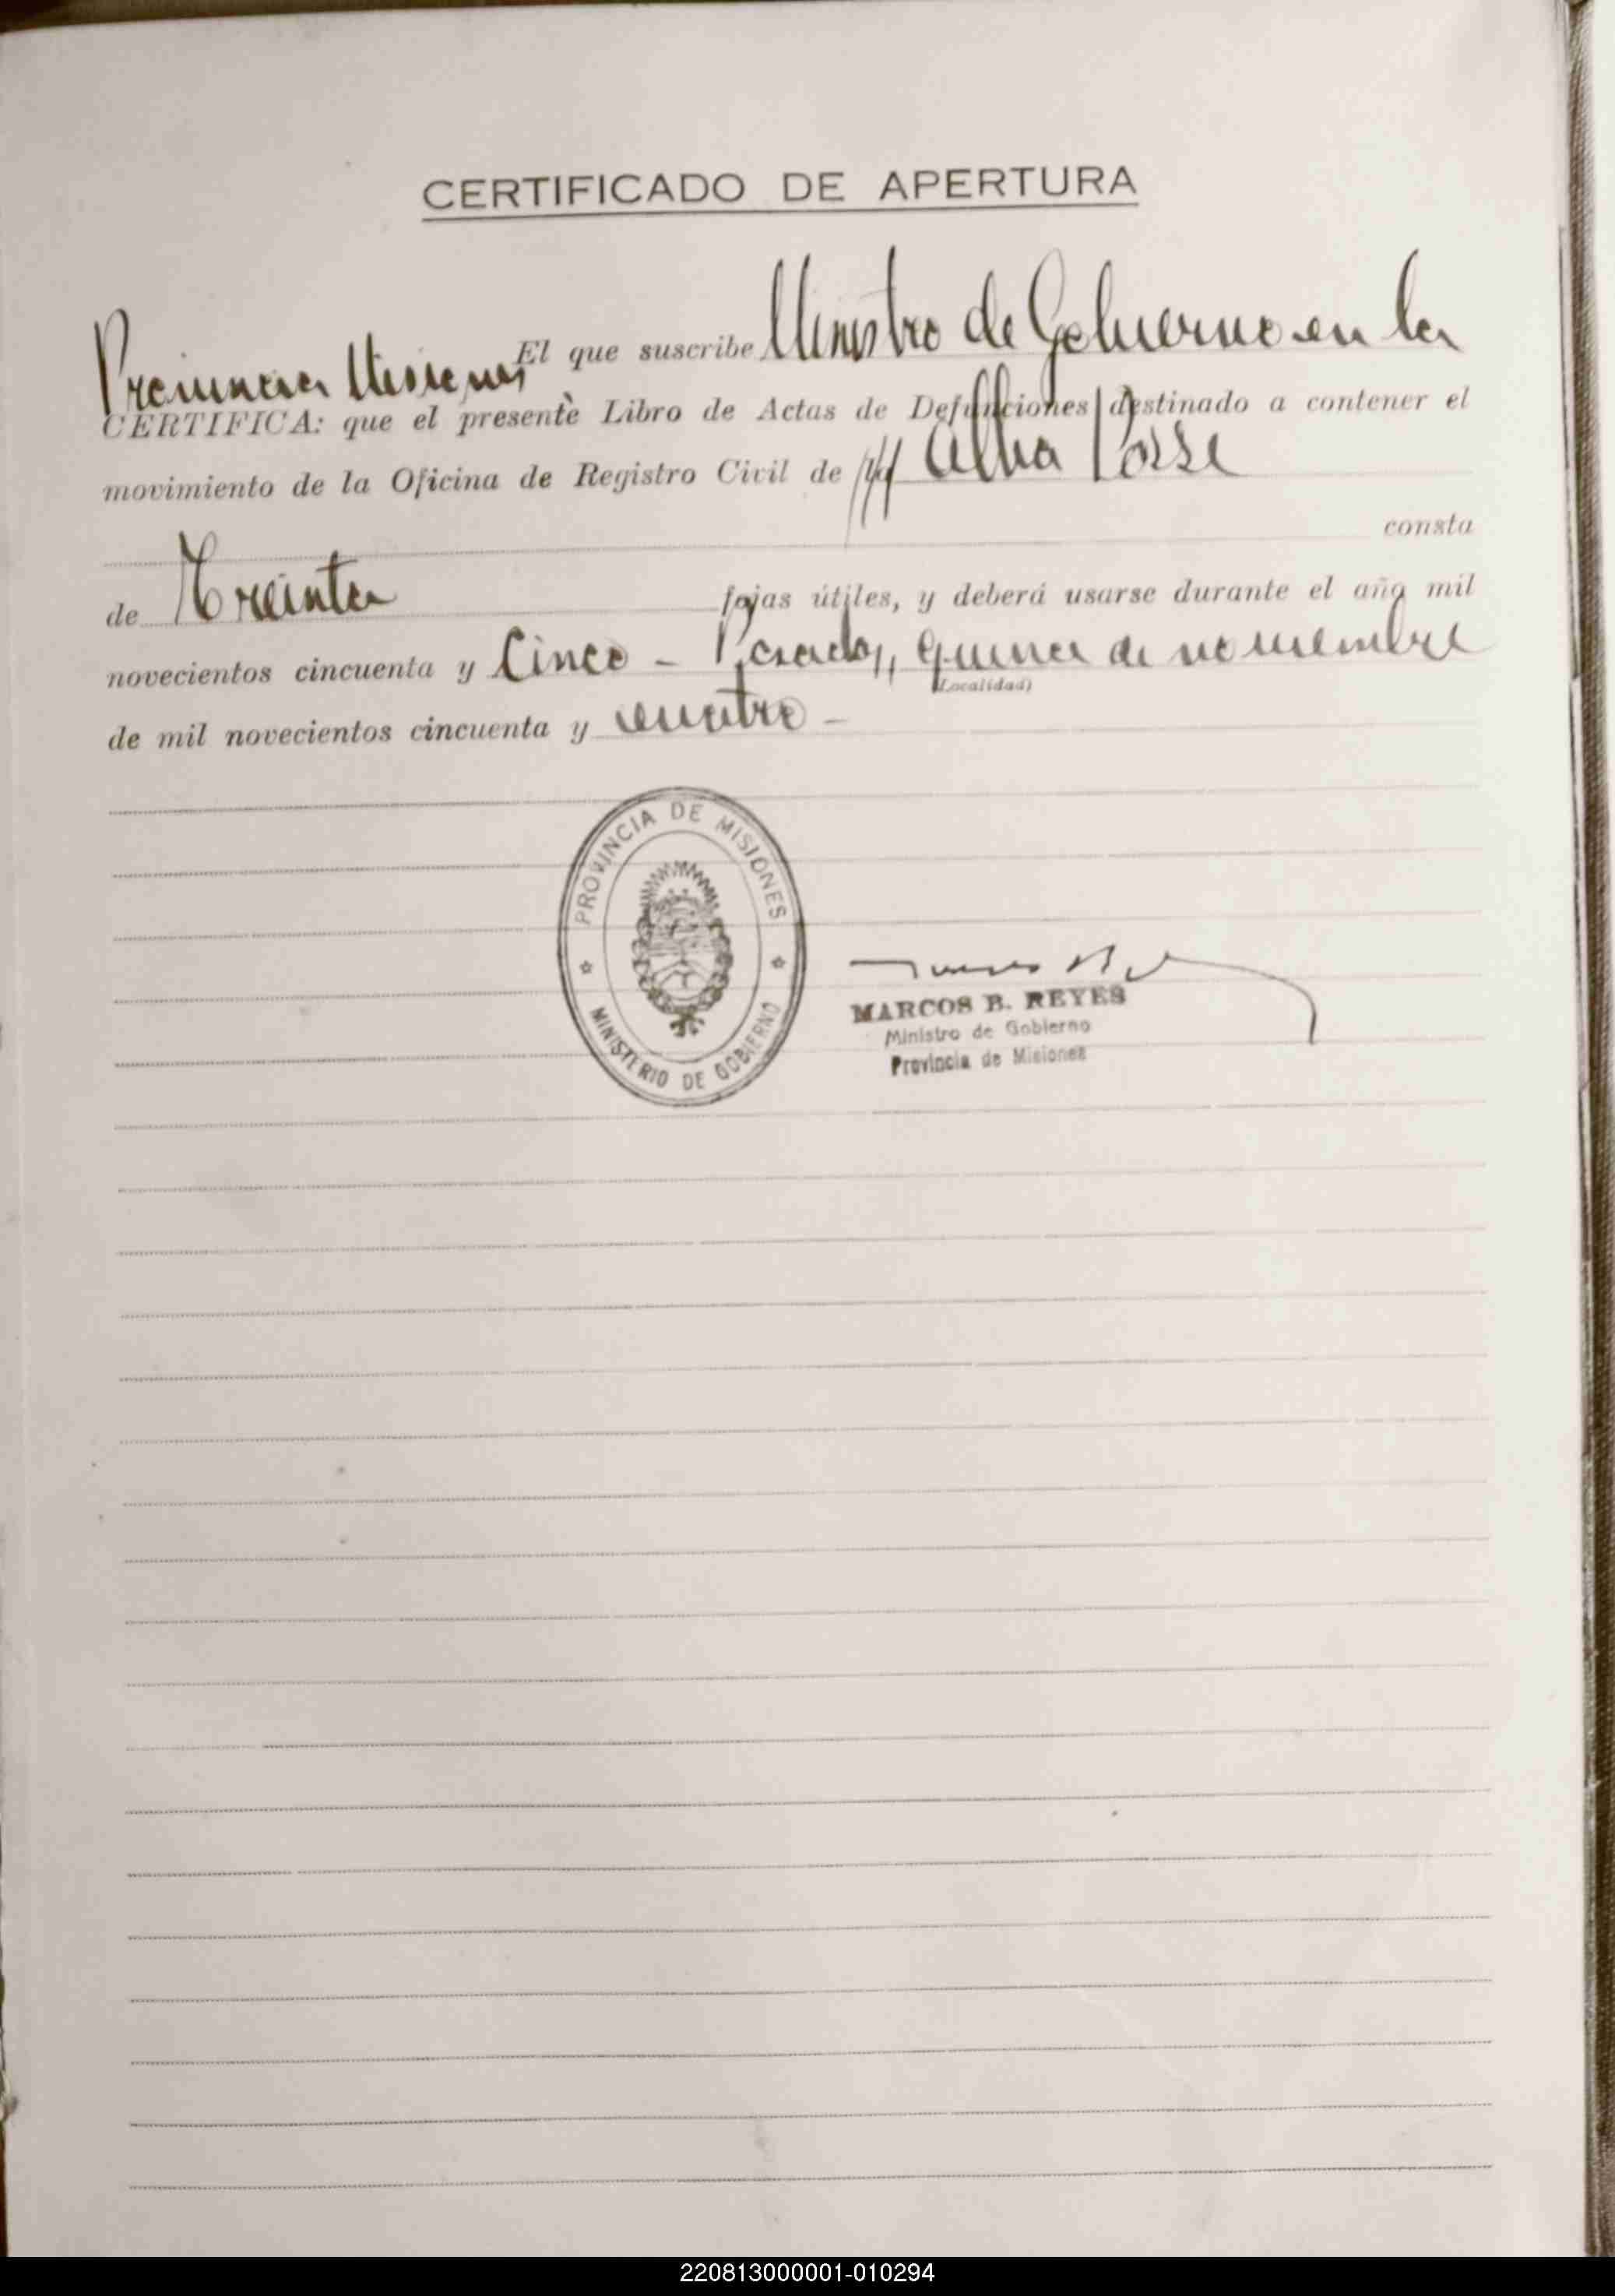 CERTIFICADO DE APERTURA
El que suscribe Ministro de Gobierno en la
Provincia Misiones
CERTIFICA: que el presente Libro de Actas de Defunciones destinado a contener el
movimiento de la Oficina de Registro Civil de Alba Posse
consta
de Treinta fojas útiles, y deberá usarse durante el año mil
novecientos cincuenta y Cinco - Posadas, quince de noviembre
(Localidad)
de mil novecientos cincuenta y cuatro -
PROVINCIA DE MISIONES
MINISTERIO DE GOBIERNO
MARCOS B. REYES
Ministro de Gobierno
Provincia de Misiones
220813000001-010294